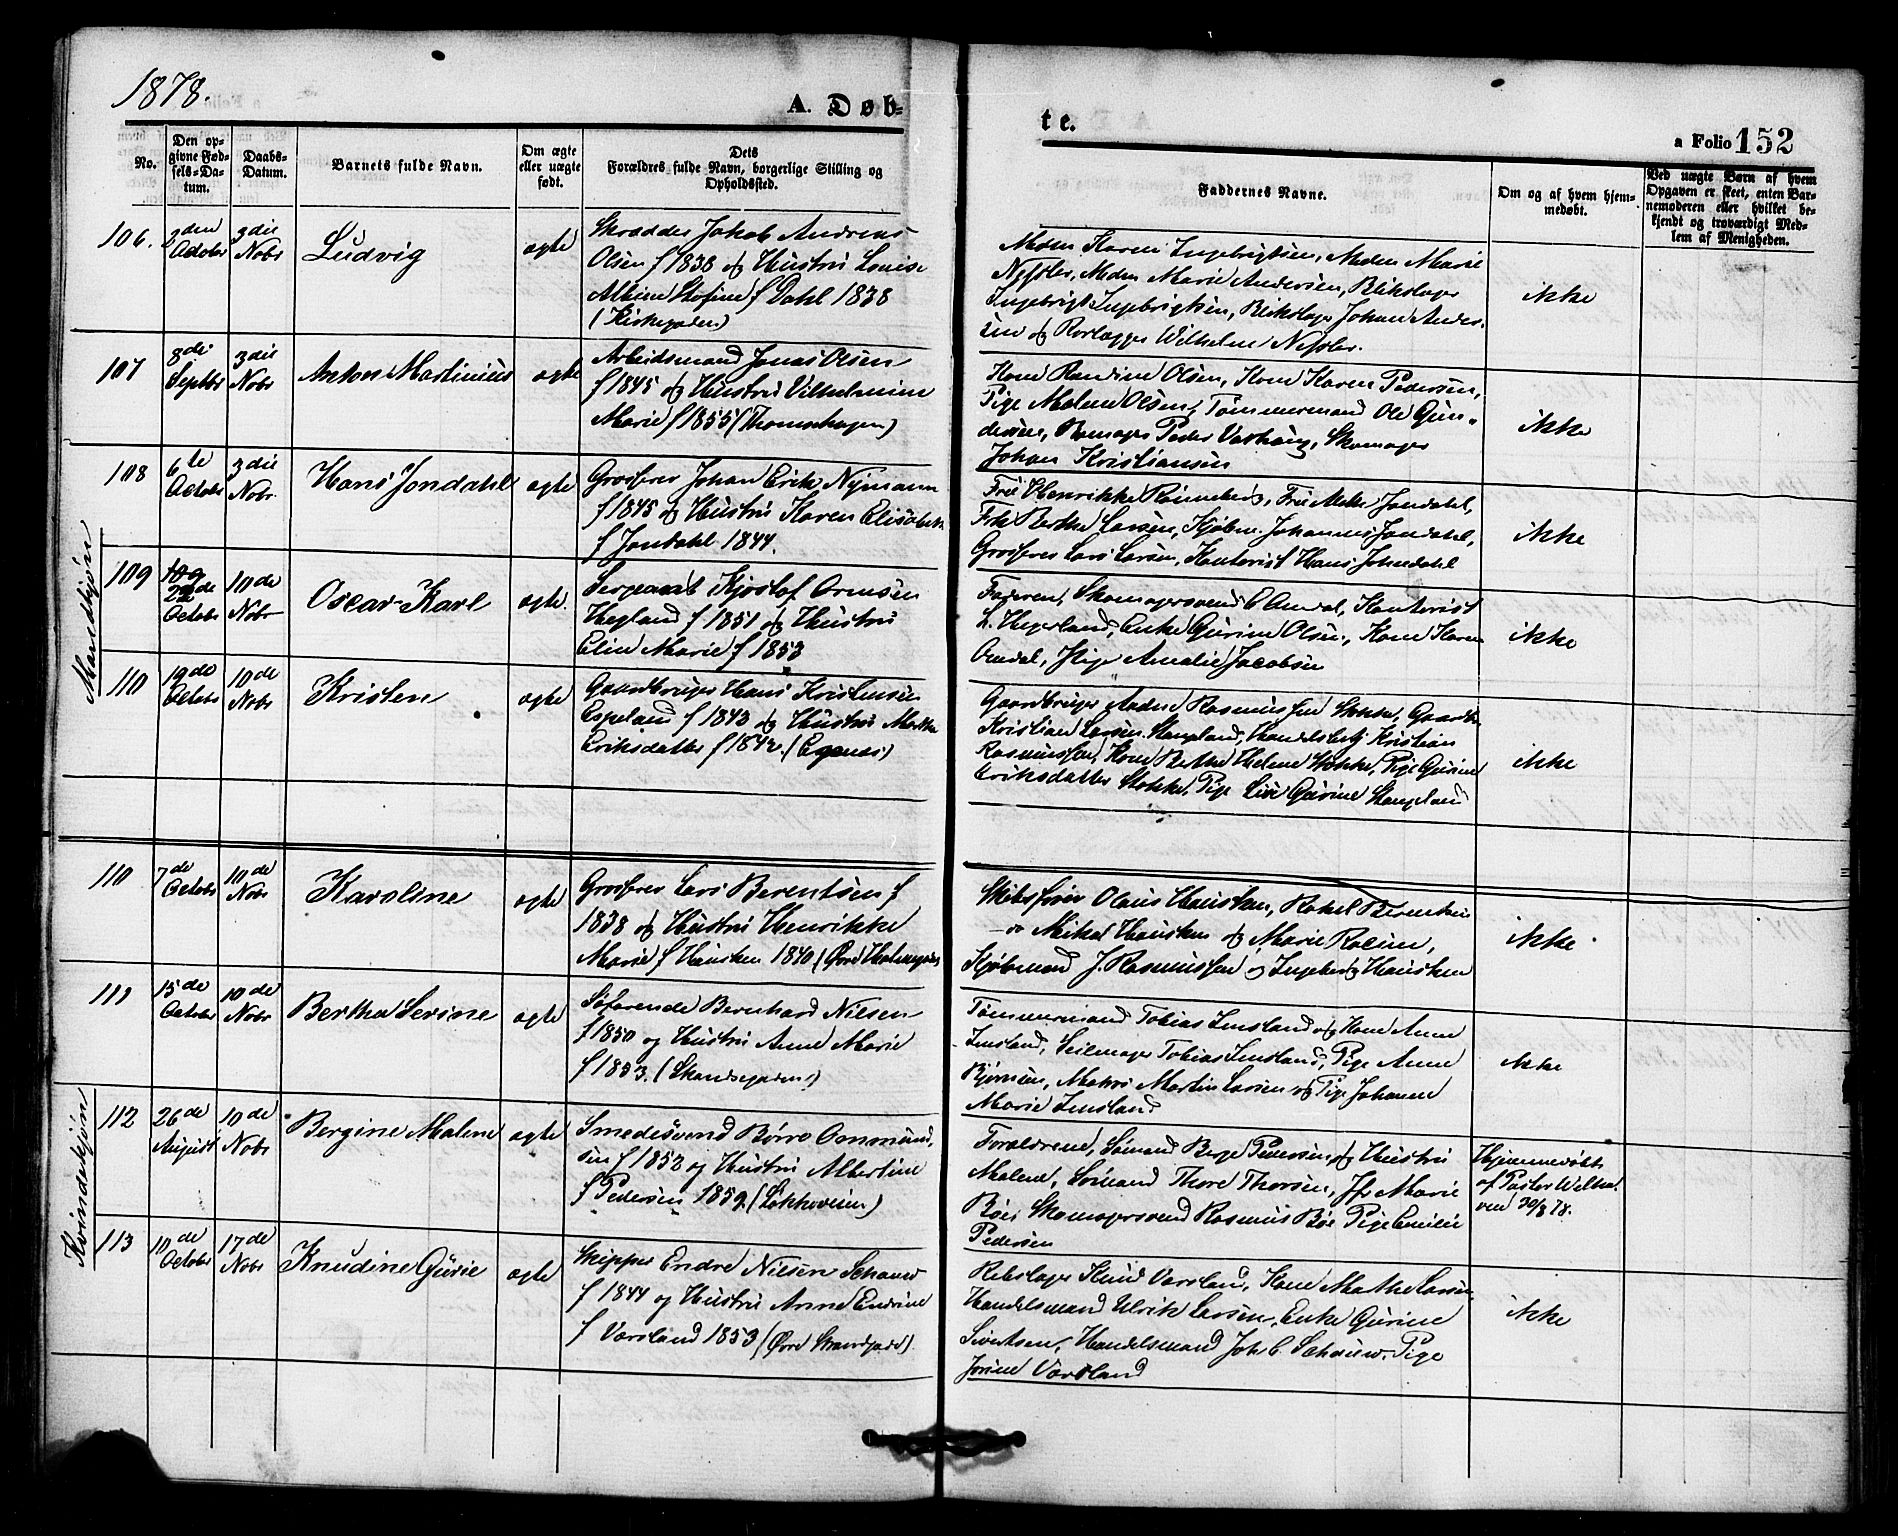 1878.
A. Døb-
te.
a Folio 152
No.
Den op-
givne Fød-
sels-Da-
tum.
Daabs-
Datum.
Barnets fulde Navn.
Om ægte
eller uægte
født.
Dets
Forældres fulde Navn, borgerlige Stilling og
Opholdssted.
Faddernes Navne.
Om og af hvem hjem-
medøbt.
Ved uægte Børn af hvem
Opgaven er skeet, enten Bar-
nemoderen eller hvilket be-
kjendt og troværdigt Med-
lem af Menigheden.
Mandkjøn
106.
3die
Nobr
Ludvig
ægte
Jakob Andreas
Olsen f 1838 og Hustru Louise
f Dahl 1838
(Kirkegaden)
Madm Karen Ingebrigtsen, Madm Marie
Nessler, Madm Marie Andersen, Blikslager
Ingebrigt Ingebrigtsen, Blikslager Johan Ander-
sen og Wilhelm Nessler.
ikke
107
8de
Septbr
3die
Nobr
Anton Martinius
ægte
Arbeidsmand Jonas Olsen
f 1845 og Hustru Vilhelmine
Marie f 1855
Kone Randine Olsen, Kone Karen Pedersen,
Pige Malene Olsen, Tømmermand Ole Gun-
dersen, Peder Skomager
Johan Kristiansen
ikke
108
6te
Octobr
3die
Nobr.
Hans Jondahl
ægte
Grosserer Johan Erik Nymann
f 1845 og Hustru Karen Elisabeth
f Jondahl 1844.
Fru Henrikke Rønneberg, Fru Jondahl,
Frk Berthe Larsen, Kjøbm. Johannes Jondahl,
Grosserer Lars Larsen, Kontorist Hans Johndahl
ikke
109
109
22de
Octobr
10de
Nobr
Oscar Karl
ægte.
Sergeant Ormsen
Hegland f 1851 og Hustru
Elin Marie f 1853
Faderen, Skomagersvend C Omdal, Kontorist
L. Hegerland, Enke Gurine Olsen, Kone Karen
Omdal, Pige Amalie Jacobsen
ikke
110
19de
Octobr
10de
Nobr
Kristen
ægte
Gaardbruger Hans Kristensen
Espeland f 1843 og Hustru Marthe
Eriksdatter f 1842. (Egenæs)
Gaardbruger Rasmussen Stokke, Gaardb.
Kristian Larsen Stangeland, Handelsbetj Kristian
Rasmussen, Kone Berthe Helene Stokke, Pige Gurine
Eriksdatter Stokke, Pige Gurine Stangeland
ikke
Kvindekjøn
110
7de
Octobr
10de
Nobr
Karoline
ægte
Grosserer Lars Berentsen f
1838 og Hustru Henrikke
Marie f Hausken 1840 (Øvre Holmegade)
Skibsfører Olaus Hausken, Rakel Berentsen
Mikal Hausken og Marie
Kjøbmand J. Rasmussen og Ingeborg Hausken
ikke
111
15de
Octobr
10de
Nobr
Bertha Serine
ægte
Søfarende Bernhard Nilsen
f 1850 og Hustru Anne Marie
f 1853. (Skandsegaden)
Tømmermand Tobias Imsland og Kone Anne
Imsland, Seilmager Tobias Imsland, Pige Anne
Bjørnsen, Matros Martin Larsen og Pige Johanne
Marie Imsland
ikke
112
26de
August
10de
Nobr
Bergine Malene
ægte
Smedesvend Børre Ommund-
sen f 1852 og Hustru Albertine
f Pedersen 1859. (Løkkeveien)
Forældrene, Sømand Berge Pedersen og Hustru
Malene, Sømand Thore Thorsen, Jfr Marie
Bøe, Skomagersvend Rasmus Bøe, Pige Emilie
Pedersen
Hjemmedøbt
af Pastor Welha-
ven 30/8 78.
113
10de
Octobr
17de
Nobr
Knudine Gurie
ægte
Skipper Endre Nilsen Schauw
f 1844 og Hustru Anne Endrine
f Varsland 1853 (Øvre Strandgade)
Rebslager Knud Varsland, Kone Marthe Larsen,
Handelsmand Ulrik Larsen, Enke Gurine
Sivertsen, Handelsmand Joh C. Schauw, Pige
Josine Varsland
ikke